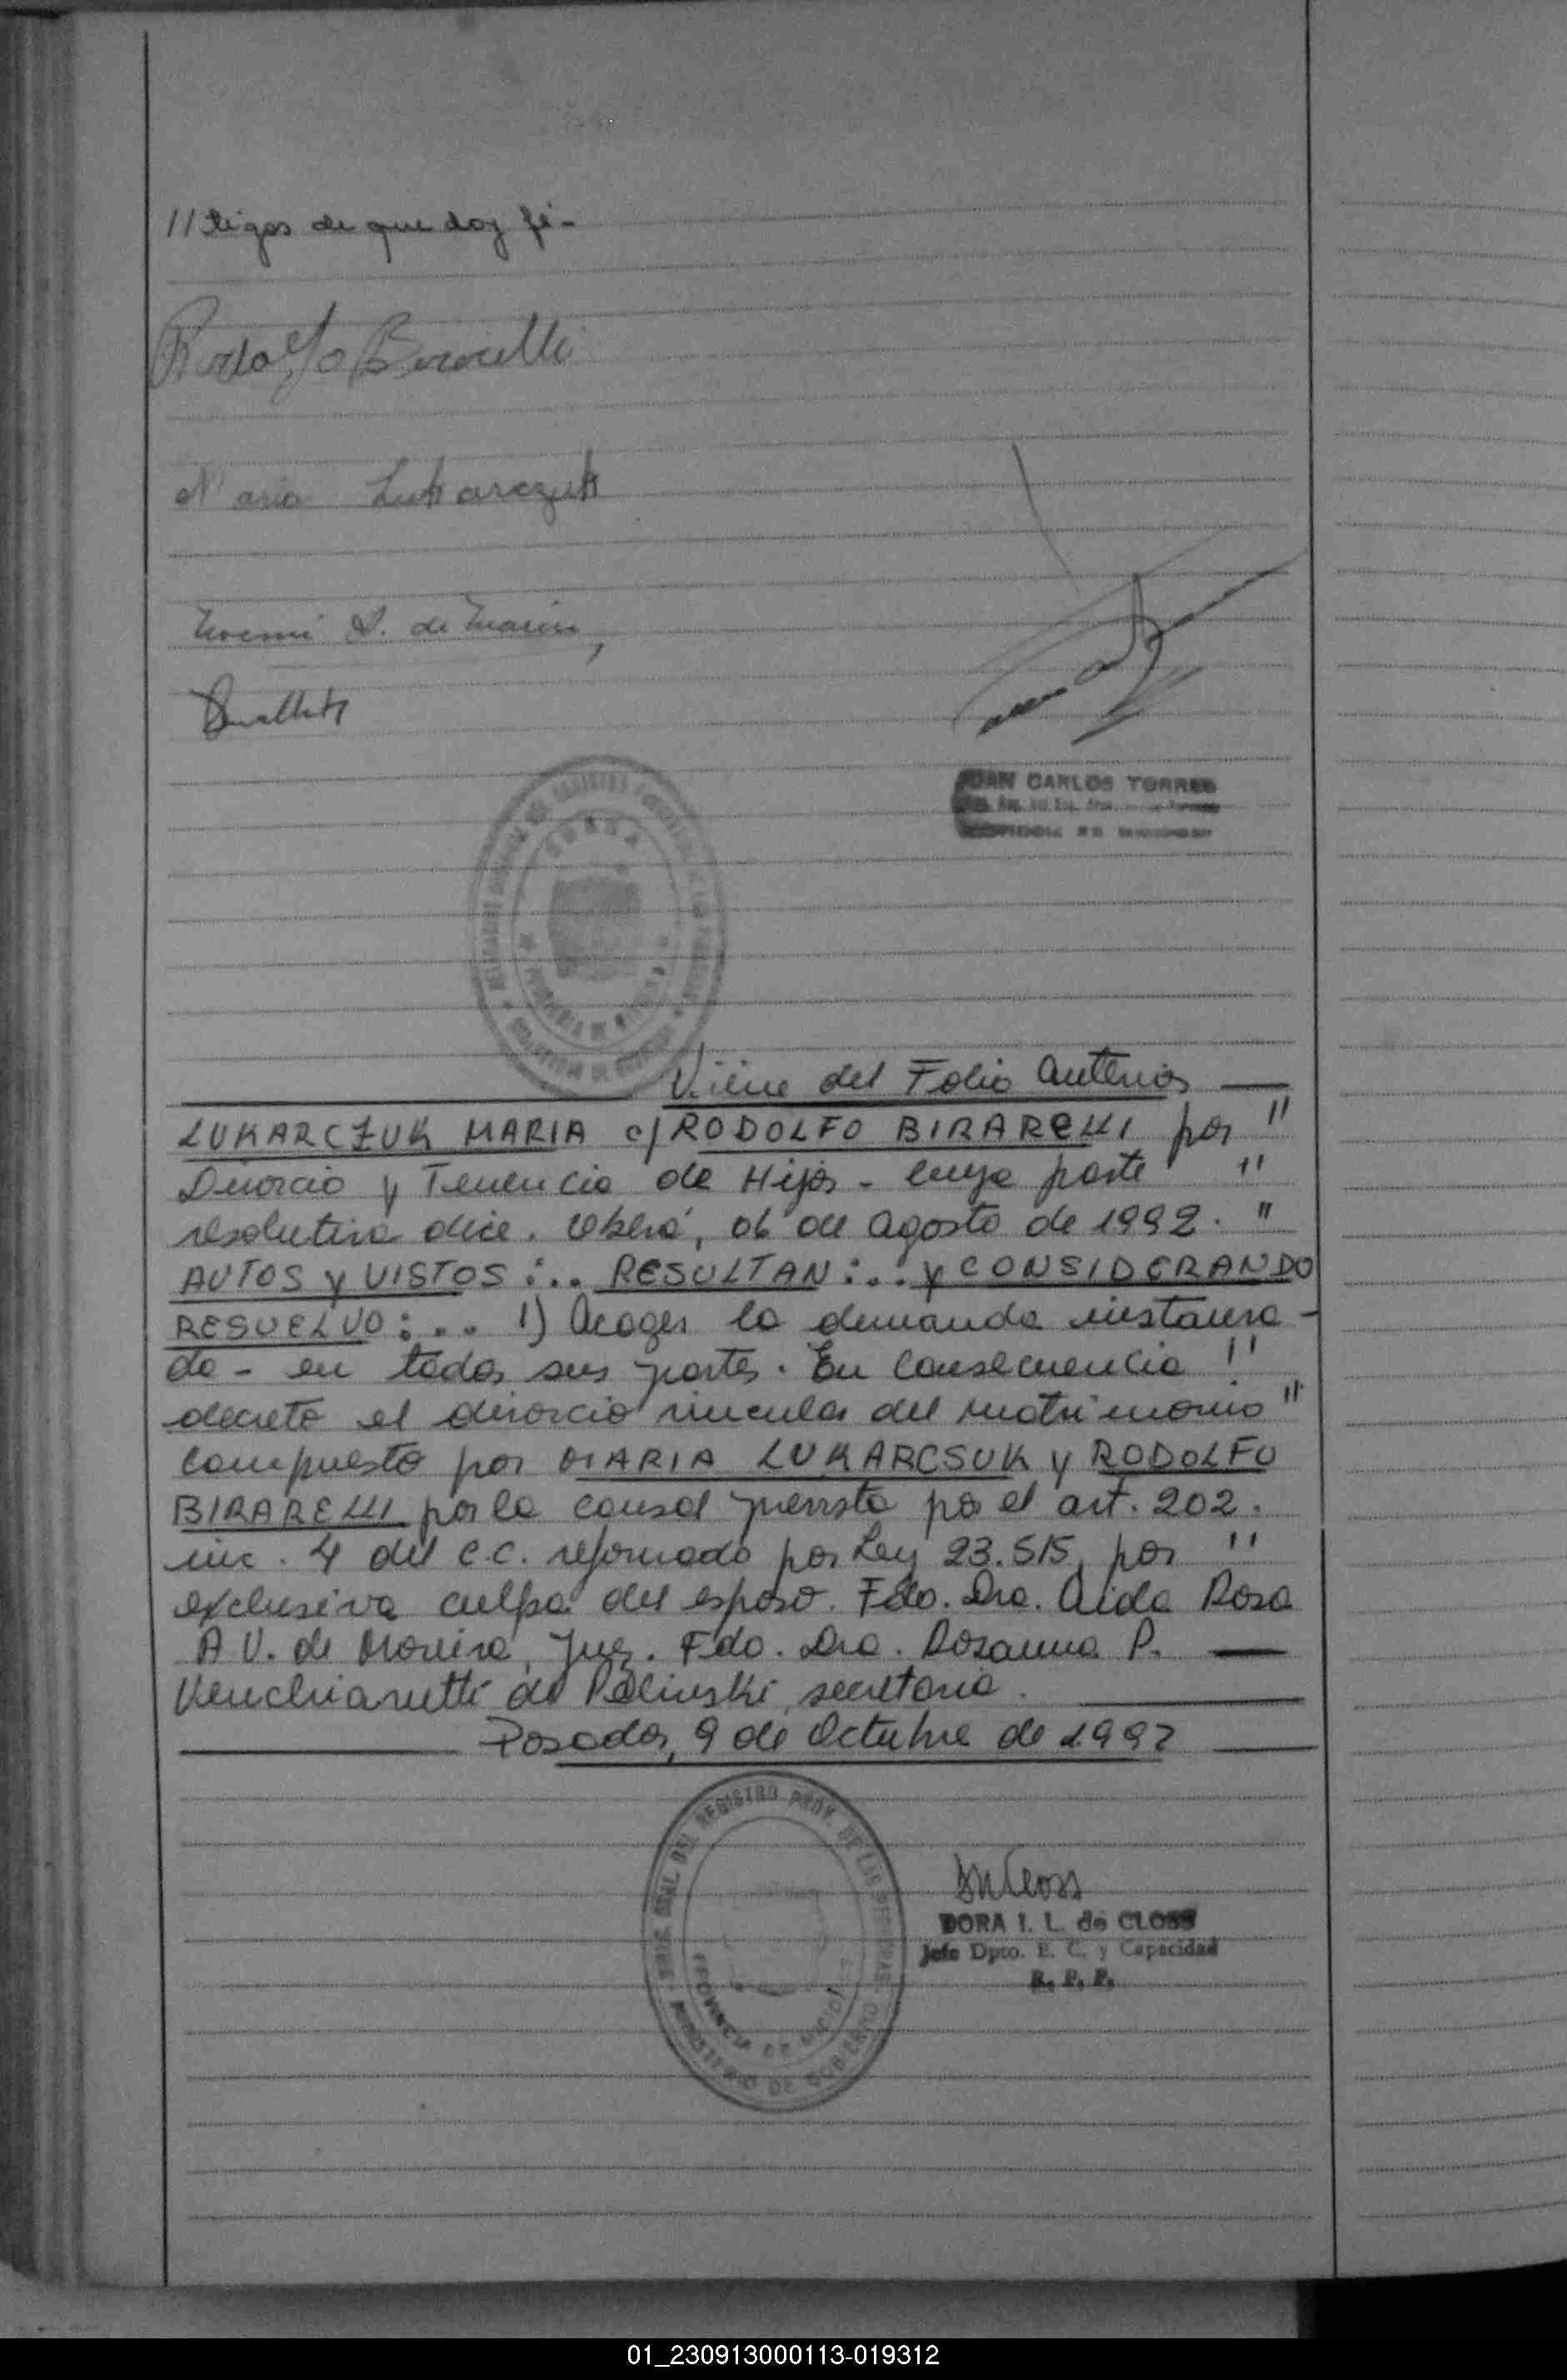 //tigos de que doy fé-
Rodolfo Birarelli
Maria Lukarczuk
Noemi S. de
JUAN CARLOS TORRES
Viene del Folio Anterior
LUKARCZUK MARIA c/ RODOLFO BIRARELLI por "
Divorcio y Tenencia de Hijos - cuya parte "
resolutiva dice. Oberá, 06 de Agosto de 1992. "
AUTOS y VISTOS:.. RESULTAN:.. y CONSIDERANDO
RESUELVO:... 1) Acoger la demanda instaura-
da - en todas sus partes. En Consecuencia "
decreto el divorcio vincular del matrimonio "
compuesto por MARIA LUKARCSUK y RODOLFO
BIRARELLI por la causal prevista por el art. 202.
inc. 4 del C.C. reformado por Ley 23.515, por "
exclusiva culpa del esposo. Fdo. Dra. Aida Rosa
A V. de Moreira, Juez. Fdo. Dra. Rosanna P.
Venchiarutti de Palinski, secretaria.
Posadas, 9 de Octubre de 1992
REGISTRO PROV. DE LAS PERSONAS
PROVINCIA DE MISIONES
MINISTERIO DE GOBIERNO
DORA I. L. de CLOSS
Jefe Dpto. E. C. y Capacidad
R. P. P.
01_230913000113-019312